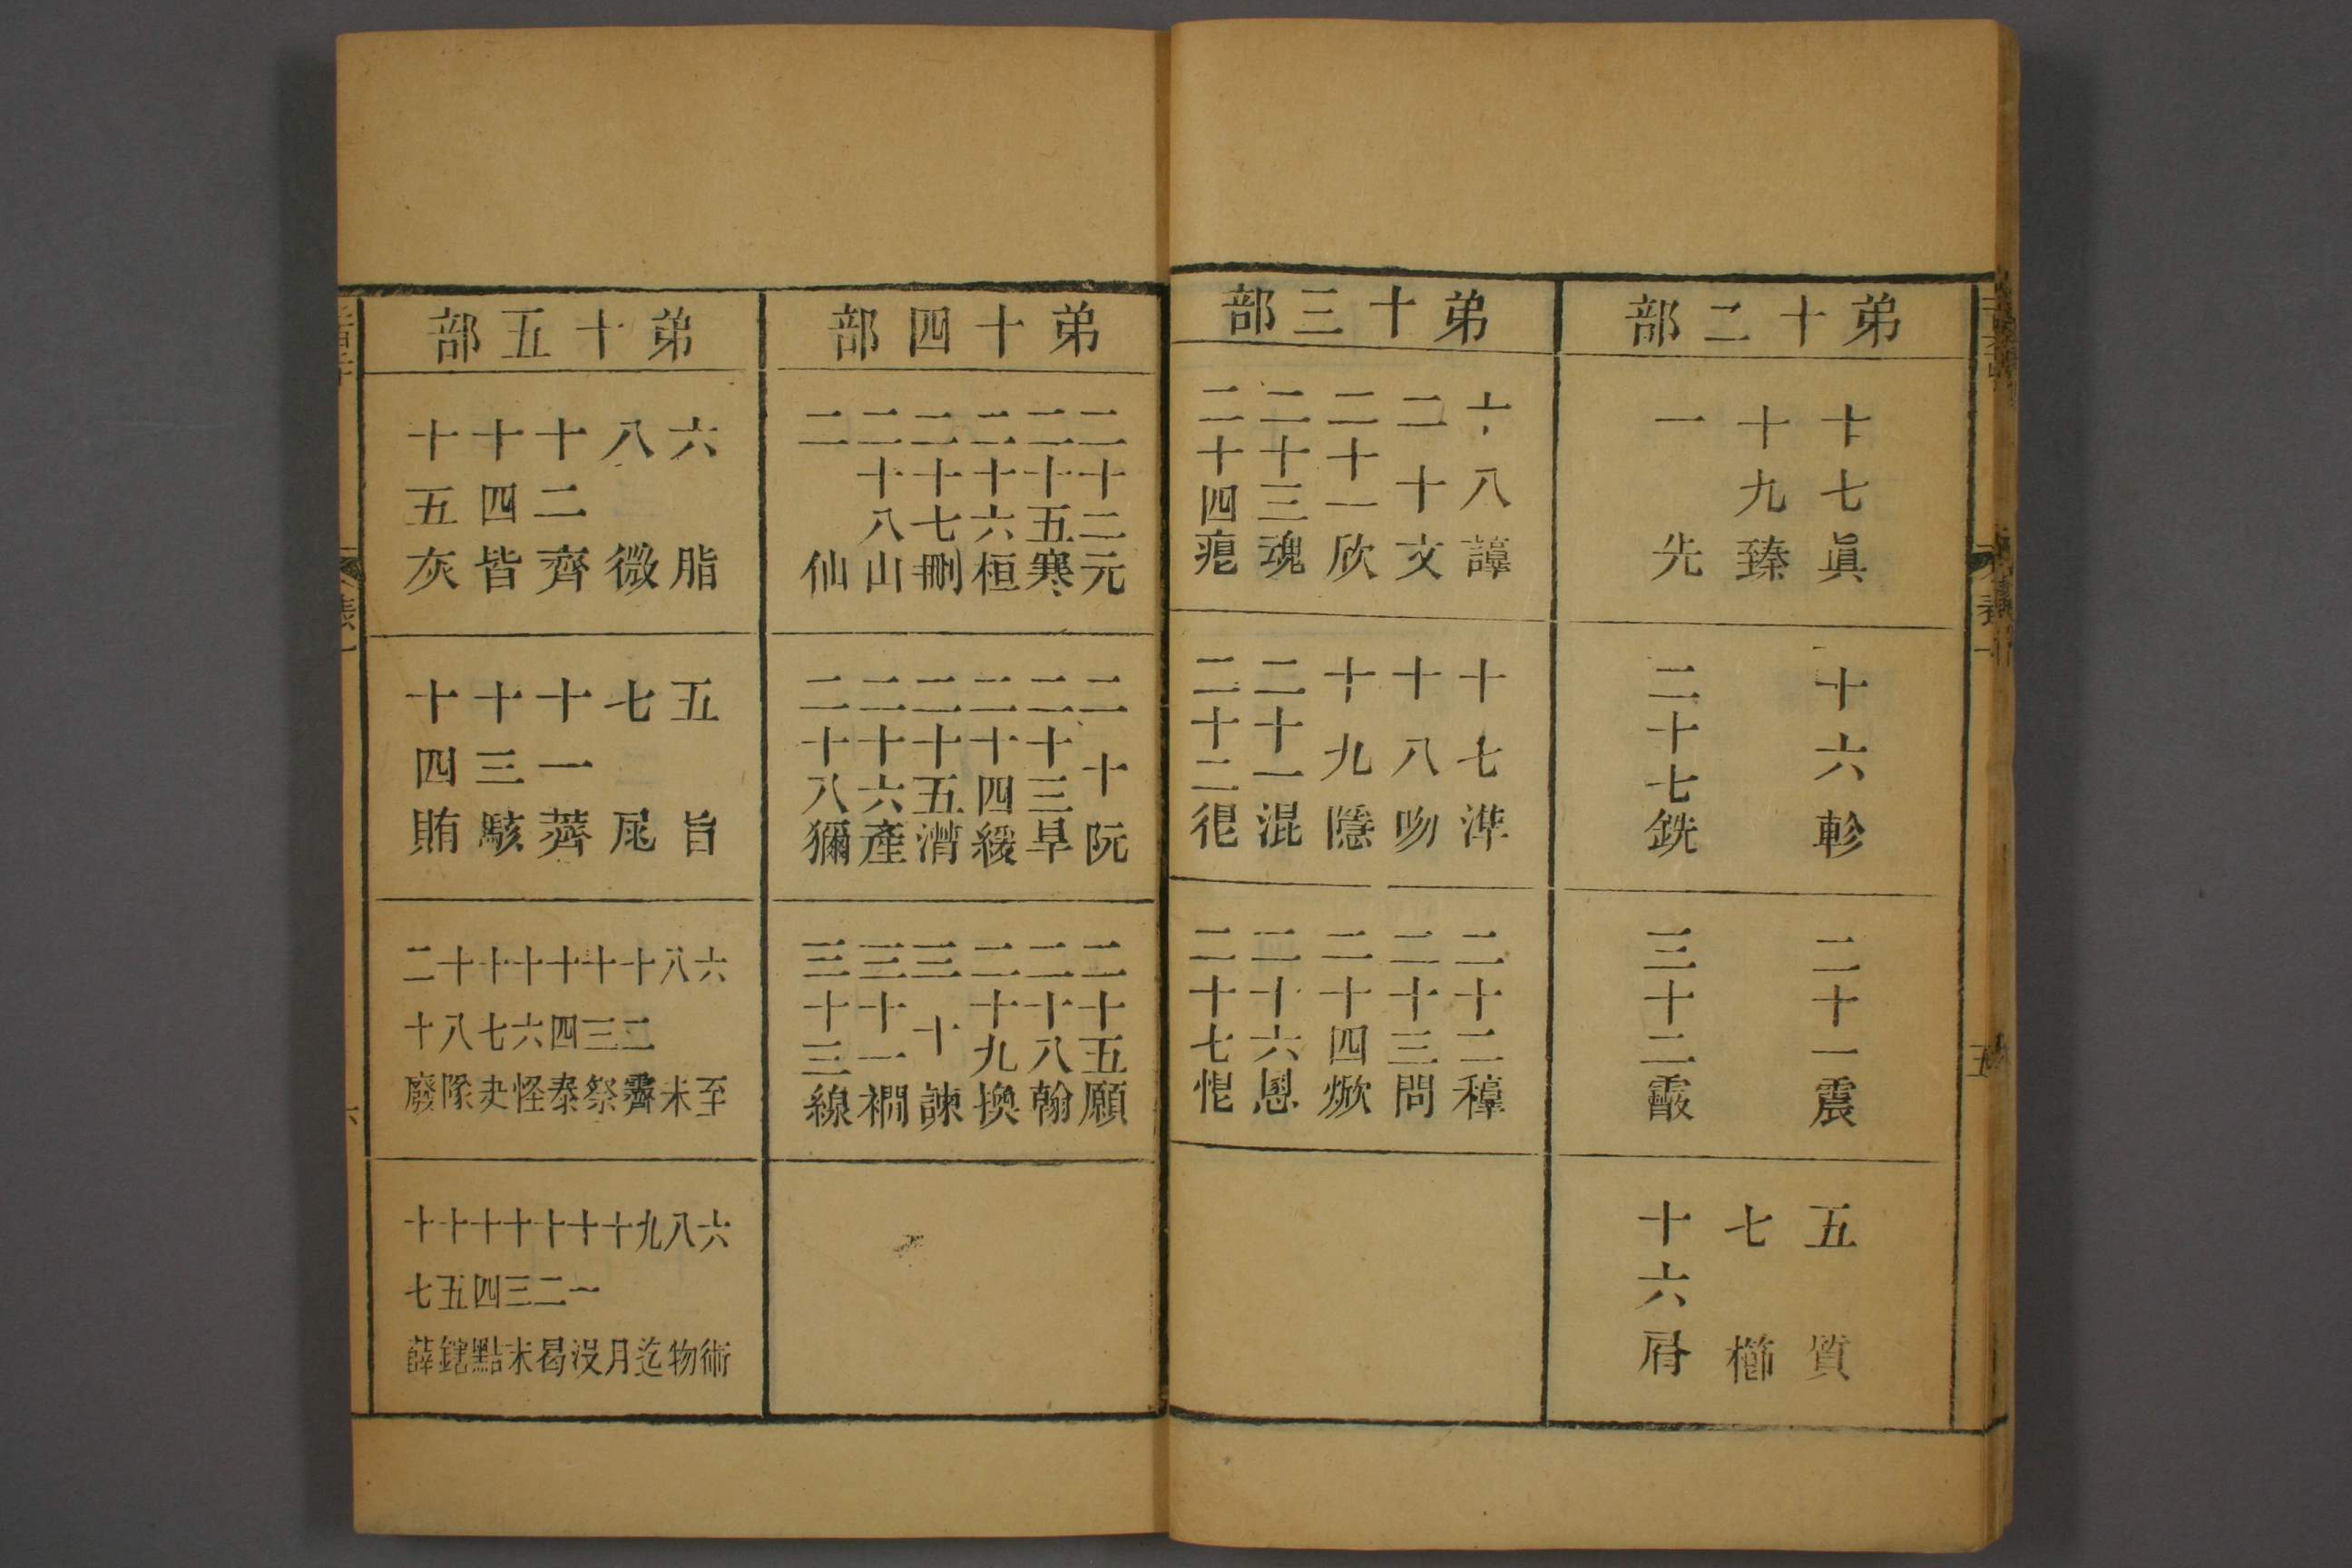 弟十二部
十七眞
十九臻
一先
十六軫
二十七銑
二十一震
三十二霰
五質
七櫛
十六屑
弟十三部
十八諄
二十文
二十一欣
二十三魂
二十四痕
十七準
十八吻
十九隱
二十一混
二十二很
二十二稕
二十三問
二十四焮
二十六慁
二十七恨
弟十四部
二十二元
二十五寒
二十六桓
二十七刪
二十八山
二仙
二十阮
二十三旱
二十四緩
二十五潸
二十六產
二十八獮
二十五願
二十八翰
二十九換
三十諫
三十一襉
三十三線
弟十五部
六脂
八微
十二齊
十四皆
十五灰
五旨
七尾
十一薺
十三駭
十四賄
六至
八未
十二霽
十三祭
十四泰
十六怪
十七夬
十八隊
二十廢
六術
八物
九迄
十月
十一沒
十二曷
十三末
十四黠
十五鎋
十七薛